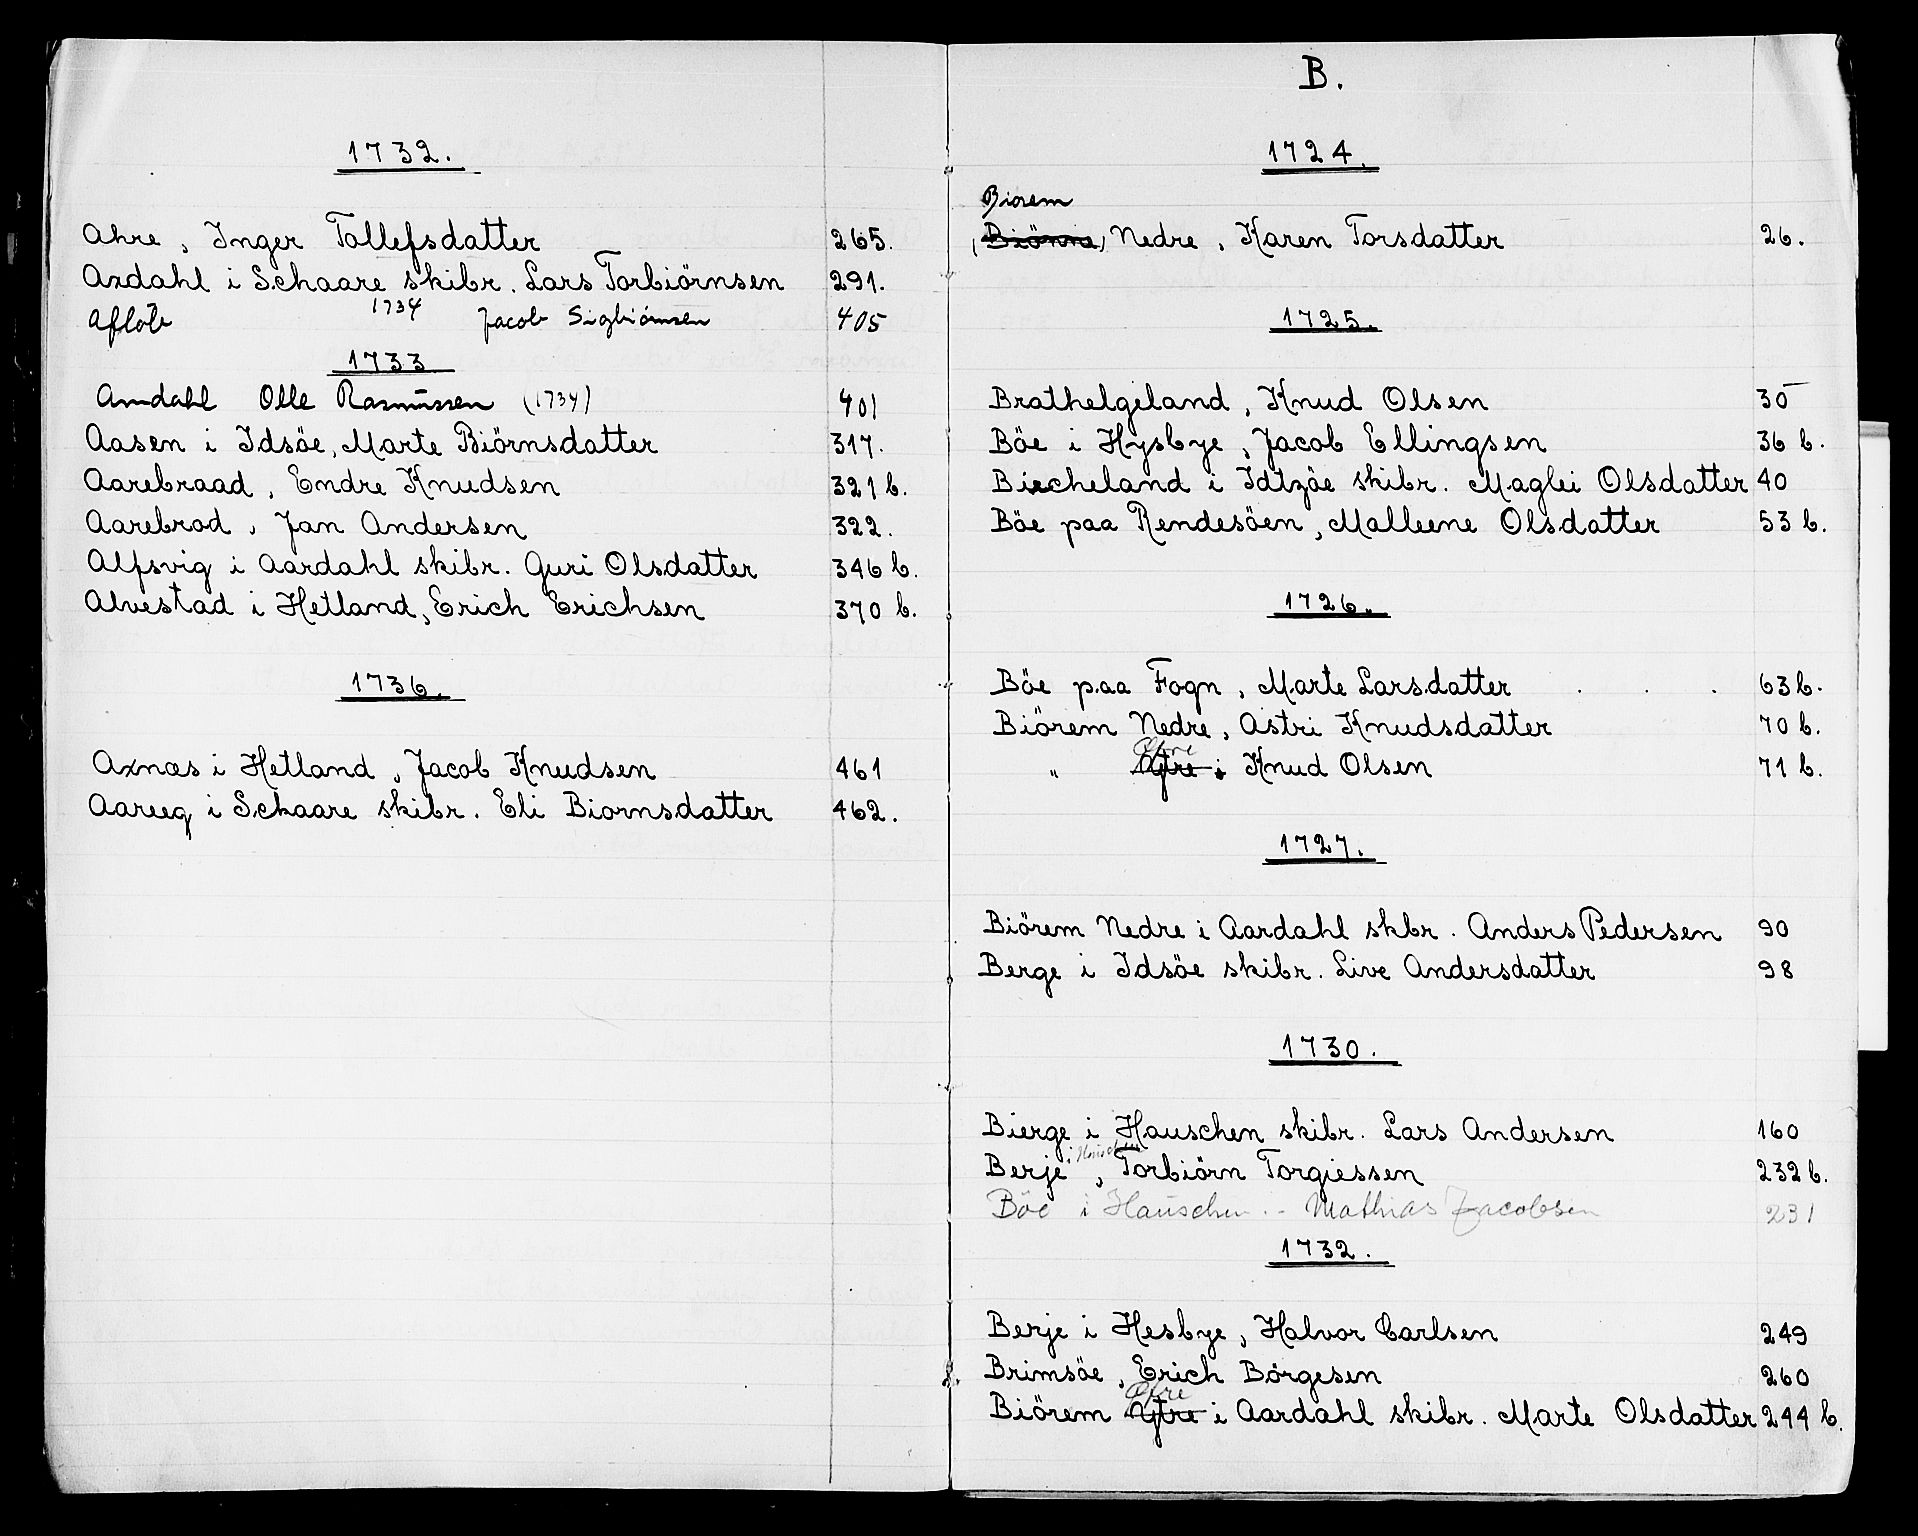 1732.
Ahre, Inger Tollefsdatter 265.
Axdahl i Schaare skibr. Lars Torbiörnsen 291.
Afløb 1734 Jacob Sigbiørnsen 405
1733
Amdahl Olle Rasmüssen (1734) 401
Aasen i Idsöe, Marte Biörnsdatter 317.
Aarebraad, Endre Knudsen 321 b.
Aarebrod, Jan Andersen 322.
Alfsvig i Aardahl skibr. Guri Olsdatter 346 b.
Alvestad i Hetland, Erich Erichsen 370 b.
1736.
Axnæs i Hetland, Jacob Knudsen 461
Aareeg i Schaare skibr. Eli Biornsdatter 462.
B.
1724.
Biorem
(Biönne) Nedre, Karen Torsdatter 26.
1725.
Brathelgeland, Knud Olsen 35
Böe i Hysbye, Jacob Ellingsen 36 b.
Biecheland i Idtzöe skibr. Maglei Olsdatter 40
Böe paa Rendesöen, Malleene Olsdatter 53 b.
1726.
Böe paa Fogn, Marte Larsdatter . . . 63 b.
Biörem Nedre, Astri Knudsdatter 70 b.
Øfre
" Ytre i Knud Olsen 71 b.
1727.
Biörem Nedre i Aardahl skbr. Anders Pedersen 90
Berge i Idsöe skibr. Live Andersdatter 98
1730.
Bierge i Hauschen skibr. Lars Andersen 160
i Hauschen
Berje, Torbiörn Torgiessen 232 b.
Böe i Hauschen .. Mathias Jacobsen 231
1732.
Berje i Hesbye, Halvor Carlsen 249
Brimsöe, Erich Börgesen 260
Øfre
Biörem Ytre i Aardahl skibr. Marte Olsdatter 244 b.